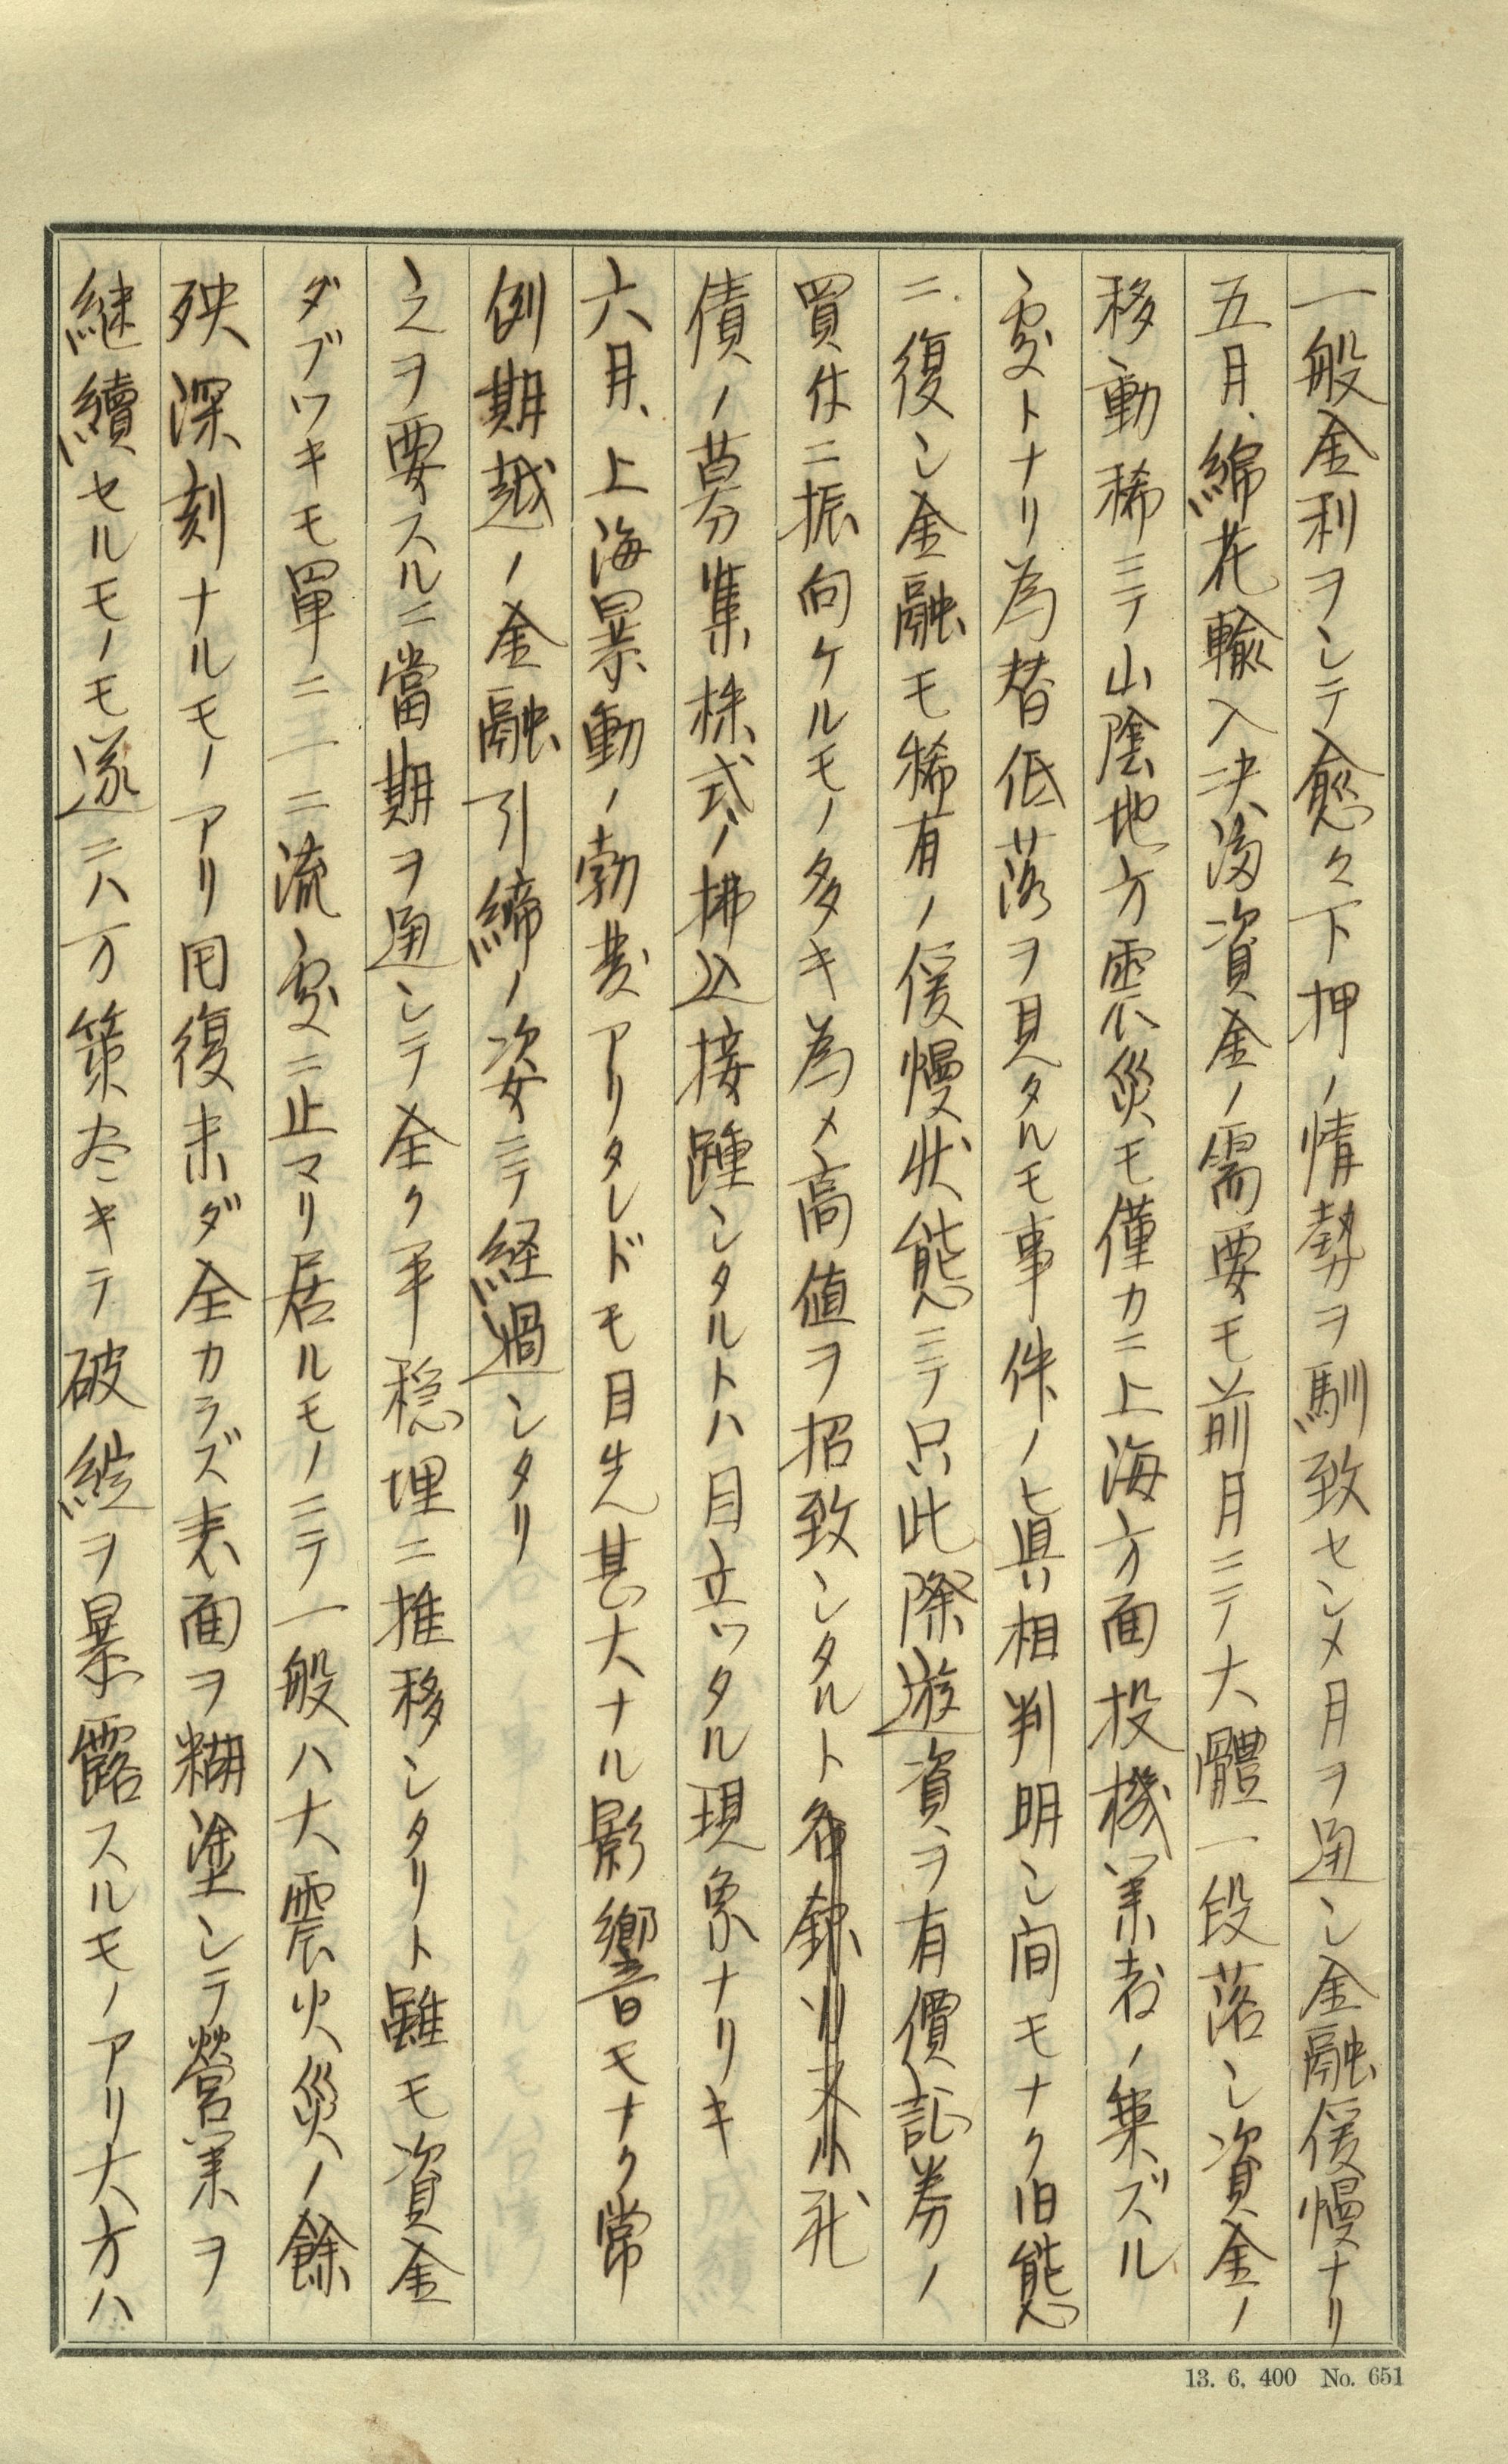 一般金利ヲシテ愈々下押ノ情勢ヲ馴致セシメ月ヲ通シ金融緩慢ナリ
五月、綿花輸入決済資金ノ需要モ前月ニテ大體一段落シ資金ノ
移動稀ニテ山陰地方震災モ僅カニ上海方面投機業者ノ乗ズル
処トナリ為替低落ヲ見タルモ事件ノ眞相判明シ間モナク旧態
ニ復シ金融モ稀有ノ緩慢状態ニテ只此際遊資ヲ有價証券ノ
買付ニ振向ケルモノ多キ為メ高値ヲ招致シタルト社
債ノ募集株式ノ拂込接踵シタルトハ目立ツタル現象ナリキ
六月、上海暴動ノ勃発アリタレドモ目先甚大ナル影響モナク常
例期越ノ金融引締ノ姿ニテ経過シタリ
之ヲ要スルニ當期ヲ通シテ全ク平穏埋ニ推移シタリト雖モ資金
ダブツキモ單ニ一ニ流処ニ止マリ居ルモノニテ一般ハ大震火災ノ餘
殃深刻ナルモノアリ囘復未ダ全カラズ表面ヲ糊塗シテ營業ヲ
継續セルモノモ遂ニハ万策尽キテ破綻ヲ暴露スルモノアリ大方ハ
13. 6, 400 No. 651